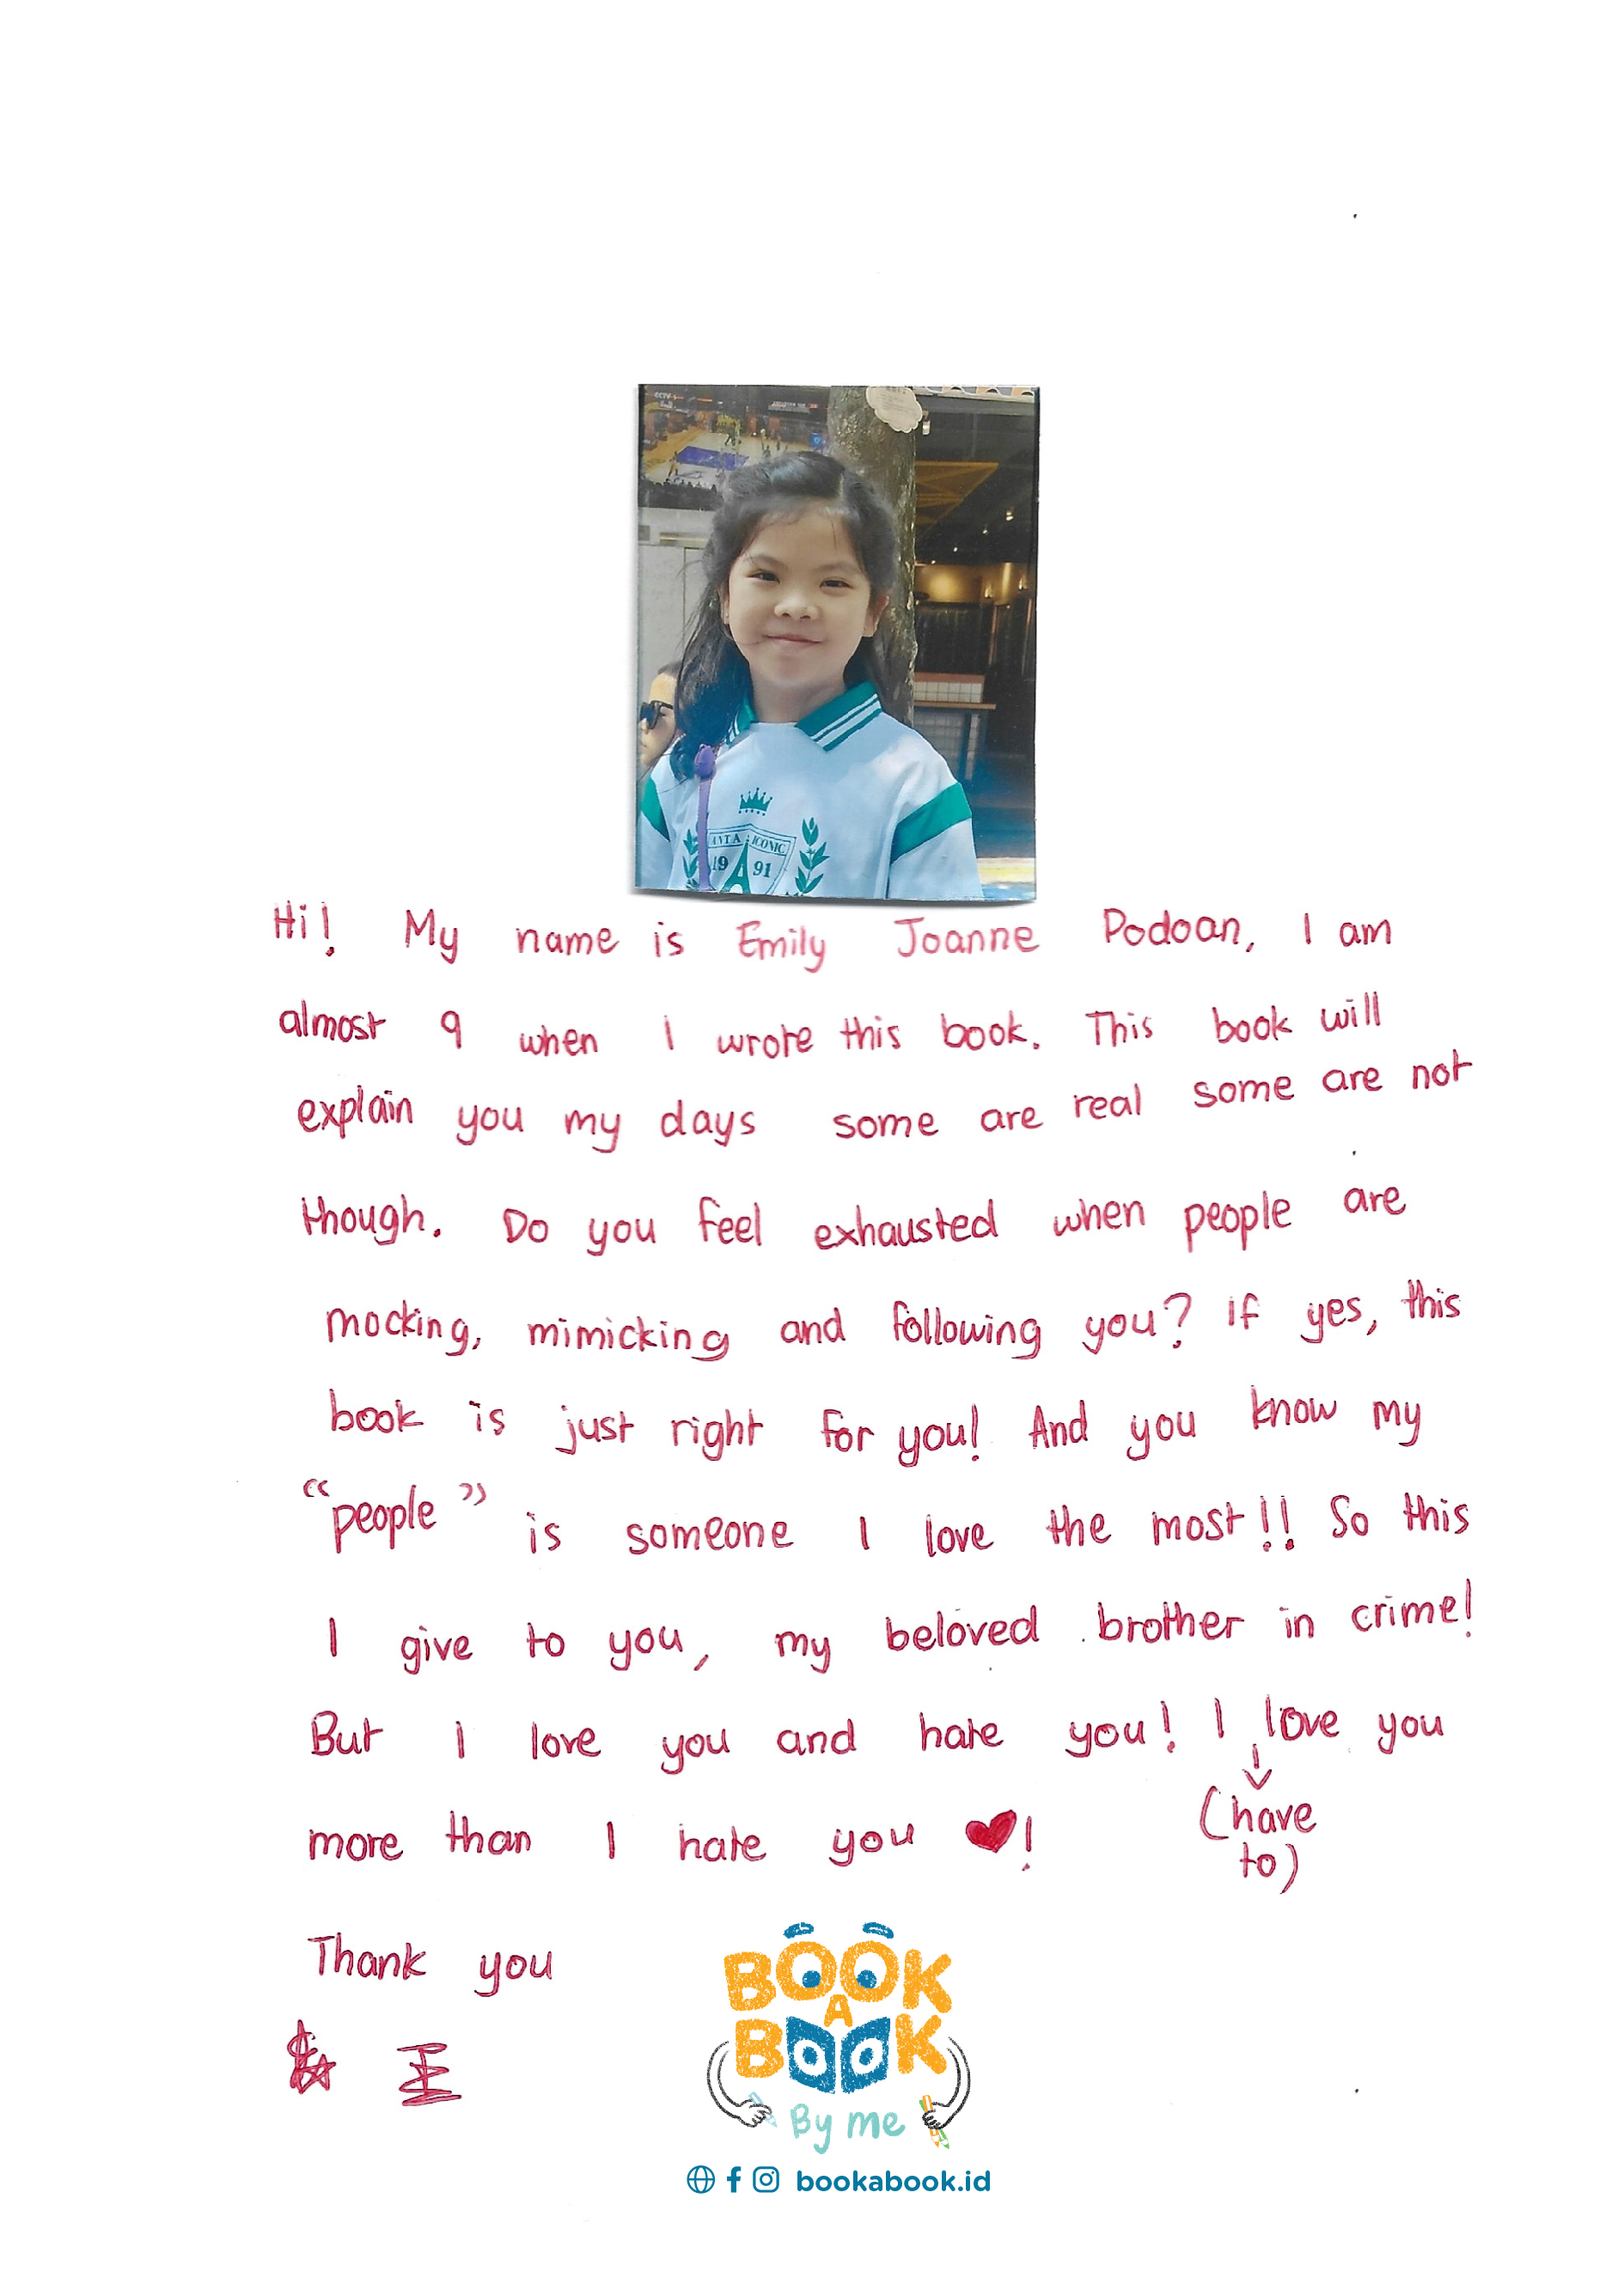 CCTV
AVTA ICONIC
19 91
Hi! My name is Emily Joanne Podoan, I am
almost 9 when I wrote this book. This book will
explain you my days some are real some are not
though. Do you feel exhausted when people are
mocking, mimicking and following you? If yes, this
book is just right for you! And you know my
"people" is someone I love the most!! So this
I give to you, my beloved brother in crime!
But I love you and hate you! I love you
(have
to)
more than I hate you ❤!
Thank you
BOOK
A
BOOK
By me
bookabook.id